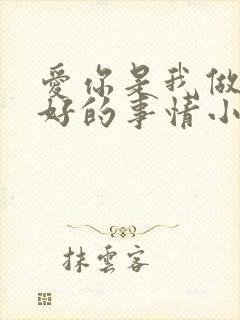 愛你是我做
好的事情小
抹雲客